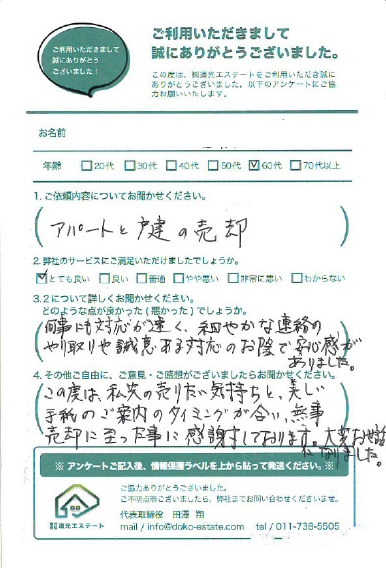 ご利用いただきまして
誠にありがとう
ございました!
ご利用いただきまして
誠にありがとうございました。
この度は、㈱道光エステートをご利用いただき誠に
ありがとうございました。以下のアンケートにご協
力お願いいたします。
お名前
年齢 □20代 □30代 □40代 □50代 ☑60代 □70代以上
1.ご依頼内容についてお聞かせください。
アパートと戸建の売却
2.弊社のサービスにご満足いただけましたでしょうか?
☑とても良い □良い □普通 □やや悪い □非常に悪い □わからない
3.2について詳しくお聞かせください。
どのような点が良かった(悪かった)でしょうか。
何事にも対応が速く、細やかな連絡の
やり取りや誠意ある対応のお陰で安心感が
ありました。
4.その他ご自由に、ご意見・ご感想がございましたらお聞かせください。
この度は、私共の売りたい気持ちと、美しい
手紙のご案内のタイミングが合い、無事
売却に至った事に感謝しております。大変お世話
になりました。
※アンケートご記入後、情報保護ラベルを上から貼って発送ください。※
ご協力ありがとうございました。
ご不明点等ございましたら、弊社までお問い合わせくださいませ。
株式会社道光エステート
代表取締役 田澤 翔
mail / info@doko-estate.com tel / 011-738-5505